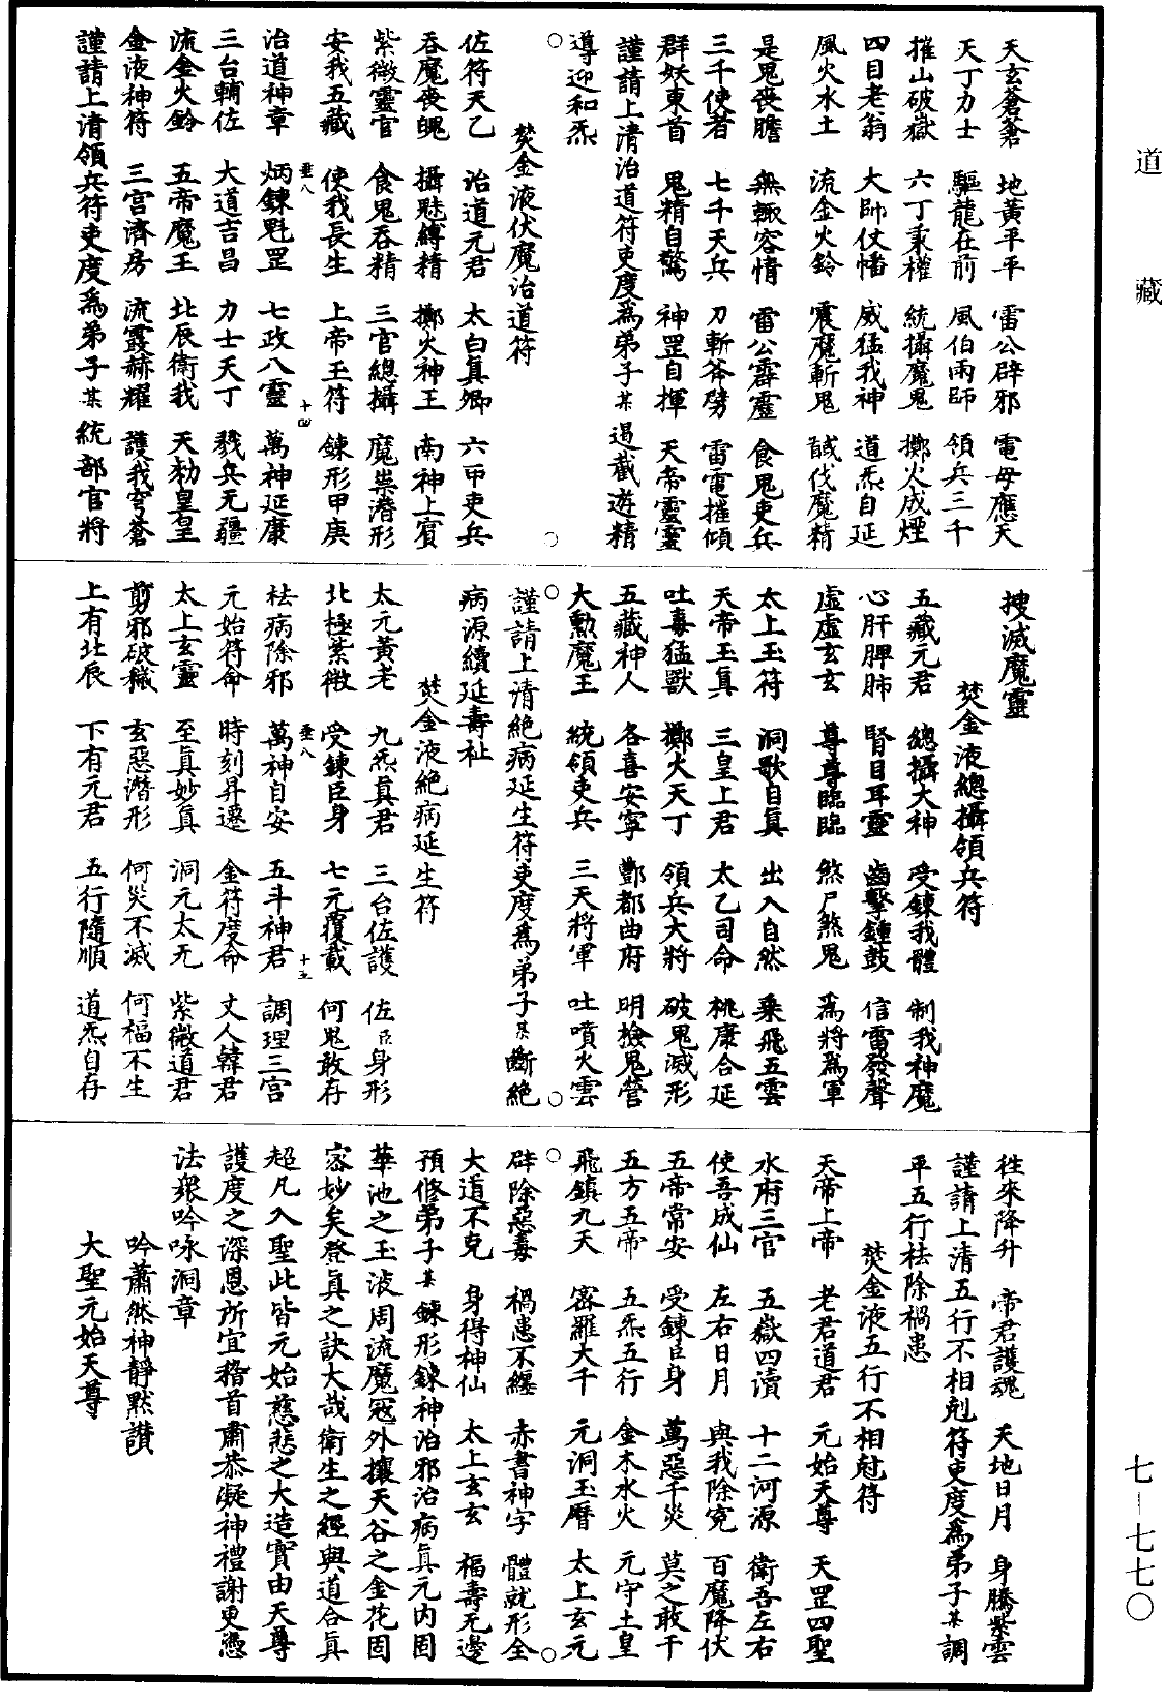 道藏
天玄蒼蒼　地黃平平　雷公辟邪　電母應天
天丁力士　驅龍在前　風伯雨師　領兵三千
摧山破嶽　六丁秉權　統攝魔鬼　擲火成煙
四目老翁　大帥仗幡　威猛我神　道炁自延
風火水土　流金火鈴　震魔斬鬼　馘伐魔精
是鬼喪膽　無輙容情　雷公霹靂　食鬼吏兵
三千使者　七千天兵　刀斬斧劈　雷電摧傾
群妖東首　鬼精自驚　神罡自揮　天帝靈靈
謹請上清治道符吏度為弟子某遏截遊精
導迎和炁
焚金液伏魔治道符
佐符天乙　治道元君　太白真卿　六甲吏兵
吞魔喪魄　攝魅縛精　擲火神王　南神上賓
紫微靈官　食鬼吞精　三官總攝　魔祟潛形
安我五藏　使我長生　上帝玉符　鍊形甲庚
垂八　十四
治道神章　炳鍊魁罡　七政八靈　萬神延康
三台輔佐　大道吉昌　力士天丁　戮兵无疆
流金火鈴　五帝魔王　北辰衛我　天勑皇皇
金液神符　三宮濟房　流霞赫耀　護我穹蒼
謹請上清領兵符吏度為弟子某統部官將
搜滅魔靈
焚金液總攝領兵符
五藏元君　總攝大神　受鍊我體　制我神魔
心肝脾肺　腎目耳靈　齒擊鍾鼓　信雷發聲
虛虛玄玄　尊尊臨臨　煞尸煞鬼　為將為軍
太上玉符　洞歌自真　出入自然　乘飛五雲
天帝玉真　三皇上君　太乙司命　桃康合延
吐毒猛獸　擲火天丁　領兵大將　破鬼滅形
五藏神人　各喜安寧　酆都曲府　明撿鬼營
大勳魔王　統領吏兵　三天將軍　吐噴火雲
謹請上清絕病延生符吏度為弟子某斷絕
病源續延壽祉
焚金液絕病延生符
太元黃老　九炁真君　三台佐護　佐臣身形
北極紫微　受鍊臣身　七元覆載　何鬼敢存
垂八　十五
祛病除邪　萬神自安　五斗神君　調理三宮
元始符命　時刻昇遷　金符度命　丈人韓君
太上玄靈　至真妙真　洞元太无　紫微道君
剪邪破穢　玄惡潛形　何災不滅　何福不生
上有北辰　下有元君　五行隨順　道炁自存
徃來降升　帝君護魂　天地日月　身騰紫雲
謹請上清五行不相剋符吏度為弟子某調
平五行祛除禍患
焚金液五行不相尅符
天帝上帝　老君道君　元始天尊　天罡四聖
水府三官　五嶽四瀆　十二河源　衛吾左右
使吾成仙　左右日月　與我除寃　百魔降伏
五帝常安　受鍊臣身　萬惡千災　莫之敢干
五方五帝　五炁五行　金木水火　元守土皇
飛鎮九天　密羅大千　元洞玉曆　太上玄元
辟除惡毒　禍患不纏　赤書神字　體就形全
大道不克　身得神仙　太上玄玄　福壽无邊
預修弟子某鍊形鍊神治邪治病真元內固
華池之玉液周流魔冦外攘天谷之金花固
密妙矣登真之訣大哉衛生之經與道合真
超凡入聖此皆元始慈悲之大造實由天尊
護度之深恩所宜稽首肅恭凝神禮謝更憑
法衆吟咏洞章
吟蕭然神靜默讃
大聖元始天尊
七—七七〇